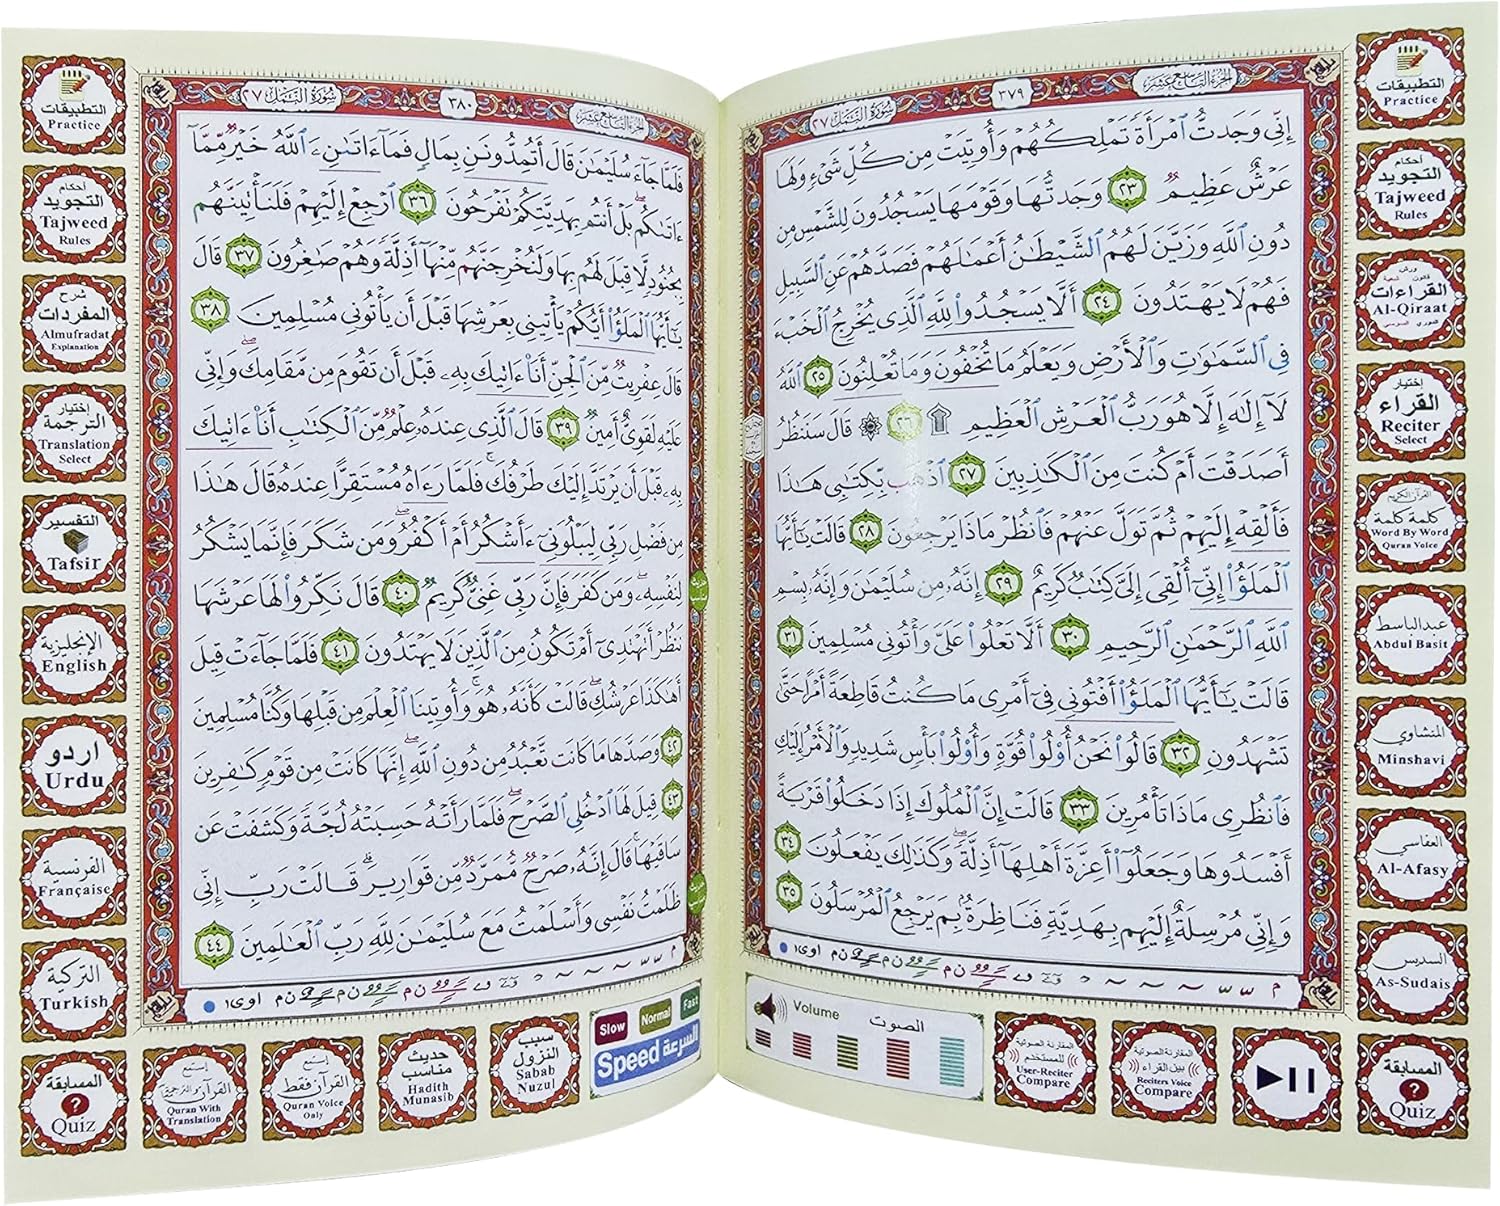 سورة النمل ٢٧
٣٧٩
الجزء التاسع عشر
إِنِّي وَجَدتُّ ٱمْرَأَةً تَمْلِكُهُمْ وَأُوتِيَتْ مِن كُلِّ شَىْءٍ وَلَهَا
عَرْشٌ عَظِيمٌ ٢٣ وَجَدتُّهَا وَقَوْمَهَا يَسْجُدُونَ لِلشَّمْسِ مِن
دُونِ ٱللَّهِ وَزَيَّنَ لَهُمُ ٱلشَّيْطَٰنُ أَعْمَٰلَهُمْ فَصَدَّهُمْ عَنِ ٱلسَّبِيلِ
فَهُمْ لَا يَهْتَدُونَ ٢٤ أَلَّا يَسْجُدُوا۟ لِلَّهِ ٱلَّذِى يُخْرِجُ ٱلْخَبْءَ
فِى ٱلسَّمَٰوَٰتِ وَٱلْأَرْضِ وَيَعْلَمُ مَا تُخْفُونَ وَمَا تُعْلِنُونَ ٢٥ ٱللَّهُ
لَآ إِلَٰهَ إِلَّا هُوَ رَبُّ ٱلْعَرْشِ ٱلْعَظِيمِ ۩ ٢٦ ۞ قَالَ سَنَنظُرُ
أَصَدَقْتَ أَمْ كُنتَ مِنَ ٱلْكَٰذِبِينَ ٢٧ ٱذْهَب بِّكِتَٰبِى هَٰذَا
فَأَلْقِهْ إِلَيْهِمْ ثُمَّ تَوَلَّ عَنْهُمْ فَٱنظُرْ مَاذَا يَرْجِعُونَ ٢٨ قَالَتْ يَٰٓأَيُّهَا
ٱلْمَلَؤُا۟ إِنِّىٓ أُلْقِىَ إِلَىَّ كِتَٰبٌ كَرِيمٌ ٢٩ إِنَّهُۥ مِن سُلَيْمَٰنَ وَإِنَّهُۥ بِسْمِ
ٱللَّهِ ٱلرَّحْمَٰنِ ٱلرَّحِيمِ ٣٠ أَلَّا تَعْلُوا۟ عَلَىَّ وَأْتُونِى مُسْلِمِينَ ٣١
قَالَتْ يَٰٓأَيُّهَا ٱلْمَلَؤُا۟ أَفْتُونِى فِىٓ أَمْرِى مَا كُنتُ قَاطِعَةً أَمْرًا حَتَّىٰ
تَشْهَدُونِ ٣٢ قَالُوا۟ نَحْنُ أُو۟لُوا۟ قُوَّةٍ وَأُو۟لُوا۟ بَأْسٍ شَدِيدٍ وَٱلْأَمْرُ إِلَيْكِ
فَٱنظُرِى مَاذَا تَأْمُرِينَ ٣٣ قَالَتْ إِنَّ ٱلْمُلُوكَ إِذَا دَخَلُوا۟ قَرْيَةً
أَفْسَدُوهَا وَجَعَلُوٓا۟ أَعِزَّةَ أَهْلِهَآ أَذِلَّةً ۖ وَكَذَٰلِكَ يَفْعَلُونَ ٣٤
وَإِنِّى مُرْسِلَةٌ إِلَيْهِم بِهَدِيَّةٍ فَنَاظِرَةٌۢ بِمَ يَرْجِعُ ٱلْمُرْسَلُونَ ٣٥
التطبيقات
Practice
أحكام
التجويد
Tajweed
Rules
ورش
قالون
شعبة
القراءات
Al-Qiraat
الدوري السوسي
إختيار
القراء
Reciter
Select
القرآن الكريم
كلمة كلمة
Word By Word
Quran Voice
عبدالباسط
Abdul Basit
المنشاوي
Minshavi
العفاسي
Al-Afasy
السديس
As-Sudais
المسابقة
?
Quiz
Volume
الصوت
المقارنة الصوتية
للمستخدم
User-Reciter
Compare
المقارنة الصوتية
بين القراء
Reciters Voice
Compare
سورة النمل ٢٧
٣٨٠
الجزء التاسع عشر
فَلَمَّا جَآءَ سُلَيْمَٰنَ قَالَ أَتُمِدُّونَنِ بِمَالٍ فَمَآ ءَاتَىٰنِۦَ ٱللَّهُ خَيْرٌ مِّمَّآ
ءَاتَىٰكُم بَلْ أَنتُم بِهَدِيَّتِكُمْ تَفْرَحُونَ ٣٦ ٱرْجِعْ إِلَيْهِمْ فَلَنَأْتِيَنَّهُم
بِجُنُودٍ لَّا قِبَلَ لَهُم بِهَا وَلَنُخْرِجَنَّهُم مِّنْهَآ أَذِلَّةً وَهُمْ صَٰغِرُونَ ٣٧ قَالَ
يَٰٓأَيُّهَا ٱلْمَلَؤُا۟ أَيُّكُمْ يَأْتِينِى بِعَرْشِهَا قَبْلَ أَن يَأْتُونِى مُسْلِمِينَ ٣٨
قَالَ عِفْرِيتٌ مِّنَ ٱلْجِنِّ أَنَا۠ ءَاتِيكَ بِهِۦ قَبْلَ أَن تَقُومَ مِن مَّقَامِكَ ۖ وَإِنِّى
عَلَيْهِ لَقَوِىٌّ أَمِينٌ ٣٩ قَالَ ٱلَّذِى عِندَهُۥ عِلْمٌ مِّنَ ٱلْكِتَٰبِ أَنَا۠ ءَاتِيكَ
بِهِۦ قَبْلَ أَن يَرْتَدَّ إِلَيْكَ طَرْفُكَ ۚ فَلَمَّا رَءَاهُ مُسْتَقِرًّا عِندَهُۥ قَالَ هَٰذَا
مِن فَضْلِ رَبِّى لِيَبْلُوَنِىٓ ءَأَشْكُرُ أَمْ أَكْفُرُ ۖ وَمَن شَكَرَ فَإِنَّمَا يَشْكُرُ
لِنَفْسِهِۦ ۖ وَمَن كَفَرَ فَإِنَّ رَبِّى غَنِىٌّ كَرِيمٌ ٤٠ قَالَ نَكِّرُوا۟ لَهَا عَرْشَهَا
نَنظُرْ أَتَهْتَدِىٓ أَمْ تَكُونُ مِنَ ٱلَّذِينَ لَا يَهْتَدُونَ ٤١ فَلَمَّا جَآءَتْ قِيلَ
أَهَٰكَذَا عَرْشُكِ ۖ قَالَتْ كَأَنَّهُۥ هُوَ ۚ وَأُوتِينَا ٱلْعِلْمَ مِن قَبْلِهَا وَكُنَّا مُسْلِمِينَ
٤٢ وَصَدَّهَا مَا كَانَت تَّعْبُدُ مِن دُونِ ٱللَّهِ ۖ إِنَّهَا كَانَتْ مِن قَوْمٍ كَٰفِرِينَ
٤٣ قِيلَ لَهَا ٱدْخُلِى ٱلصَّرْحَ ۖ فَلَمَّا رَأَتْهُ حَسِبَتْهُ لُجَّةً وَكَشَفَتْ عَن
سَاقَيْهَا ۚ قَالَ إِنَّهُۥ صَرْحٌ مُّمَرَّدٌ مِّن قَوَارِيرَ ۗ قَالَتْ رَبِّ إِنِّى
ظَلَمْتُ نَفْسِى وَأَسْلَمْتُ مَعَ سُلَيْمَٰنَ لِلَّهِ رَبِّ ٱلْعَٰلَمِينَ ٤٤
التطبيقات
Practice
أحكام
التجويد
Tajweed
Rules
شرح
المفردات
Almufradat
Explanation
إختيار
الترجمة
Translation
Select
التفسير
Tafsir
الإنجليزية
English
اردو
Urdu
الفرنسية
Française
التركية
Turkish
المسابقة
?
Quiz
إستمع
القرآن والترجمة
Quran With
Translation
إستمع
القرآن فقط
Quran Voice
Only
حديث
مناسب
Hadith
Munasib
سبب
النزول
Sabab
Nuzul
Slow
Normal
Fast
Speed السرعة